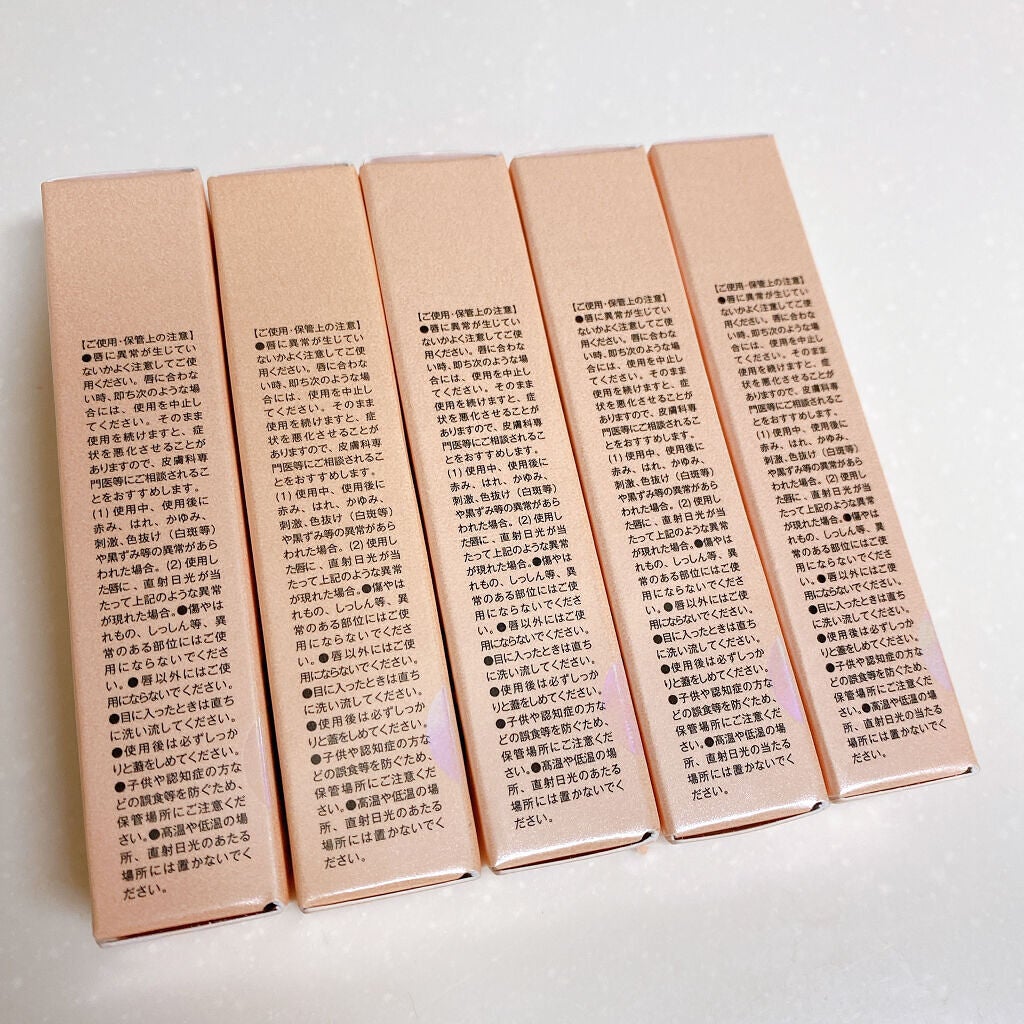 【ご使用・保管上の注意】
●唇に異常が生じてい
ないかよく注意してご使
用ください。唇に合わな
い時、即ち次のような場
合には、使用を中止し
てください。そのまま
使用を続けますと、症
状を悪化させることが
ありますので、皮膚科専
門医等にご相談されるこ
とをおすすめします。
(1) 使用中、使用後に
赤み、はれ、かゆみ、
刺激、色抜け（白斑等）
や黒ずみ等の異常があら
われた場合。(2) 使用し
た唇に、直射日光が当
たって上記のような異常
が現れた場合。●傷やは
れもの、しっしん等、異
常のある部位にはご使
用にならないでくださ
い。●唇以外にはご使
用にならないでください。
●目に入ったときは直ち
に洗い流してください。
●使用後は必ずしっか
りと蓋をしめてください。
●子供や認知症の方な
どの誤食等を防ぐため、
保管場所にご注意くだ
さい。●高温や低温の場
所、直射日光のあたる
場所には置かないでく
ださい。
【ご使用・保管上の注意】
●唇に異常が生じてい
ないかよく注意してご使
用ください。唇に合わな
い時、即ち次のような場
合には、使用を中止し
てください。そのまま
使用を続けますと、症
状を悪化させることが
ありますので、皮膚科専
門医等にご相談されるこ
とをおすすめします。
(1) 使用中、使用後に
赤み、はれ、かゆみ、
刺激、色抜け（白斑等）
や黒ずみ等の異常があら
われた場合。(2) 使用し
た唇に、直射日光が当
たって上記のような異常
が現れた場合。●傷やは
れもの、しっしん等、異
常のある部位にはご使
用にならないでくださ
い。●唇以外にはご使
用にならないでください。
●目に入ったときは直ち
に洗い流してください。
●使用後は必ずしっか
りと蓋をしめてください。
●子供や認知症の方な
どの誤食等を防ぐため、
保管場所にご注意くだ
さい。●高温や低温の場
所、直射日光のあたる
場所には置かないでく
ださい。
【ご使用・保管上の注意】
●唇に異常が生じてい
ないかよく注意してご使
用ください。唇に合わな
い時、即ち次のような場
合には、使用を中止し
てください。そのまま
使用を続けますと、症
状を悪化させることが
ありますので、皮膚科専
門医等にご相談されるこ
とをおすすめします。
(1) 使用中、使用後に
赤み、はれ、かゆみ、
刺激、色抜け（白斑等）
や黒ずみ等の異常があら
われた場合。(2) 使用し
た唇に、直射日光が当
たって上記のような異常
が現れた場合。●傷やは
れもの、しっしん等、異
常のある部位にはご使
用にならないでくださ
い。●唇以外にはご使
用にならないでください。
●目に入ったときは直ち
に洗い流してください。
●使用後は必ずしっか
りと蓋をしめてください。
●子供や認知症の方な
どの誤食等を防ぐため、
保管場所にご注意くだ
さい。●高温や低温の場
所、直射日光のあたる
場所には置かないでく
ださい。
【ご使用・保管上の注意】
●唇に異常が生じてい
ないかよく注意してご使
用ください。唇に合わな
い時、即ち次のような場
合には、使用を中止し
てください。そのまま
使用を続けますと、症
状を悪化させることが
ありますので、皮膚科専
門医等にご相談されるこ
とをおすすめします。
(1) 使用中、使用後に
赤み、はれ、かゆみ、
刺激、色抜け（白斑等）
や黒ずみ等の異常があら
われた場合。(2) 使用し
た唇に、直射日光が当
たって上記のような異常
が現れた場合。●傷やは
れもの、しっしん等、異
常のある部位にはご使
用にならないでくださ
い。●唇以外にはご使
用にならないでください。
●目に入ったときは直ち
に洗い流してください。
●使用後は必ずしっか
りと蓋をしめてください。
●子供や認知症の方な
どの誤食等を防ぐため、
保管場所にご注意くだ
さい。●高温や低温の場
所、直射日光の当たる
場所には置かないでく
ださい。
【ご使用・保管上の注意】
●唇に異常が生じてい
ないかよく注意してご使
用ください。唇に合わな
い時、即ち次のような場
合には、使用を中止し
てください。そのまま
使用を続けますと、症
状を悪化させることが
ありますので、皮膚科専
門医等にご相談されるこ
とをおすすめします。
(1) 使用中、使用後に
赤み、はれ、かゆみ、
刺激、色抜け（白斑等）
や黒ずみ等の異常があら
われた場合。(2) 使用し
た唇に、直射日光が当
たって上記のような異常
が現れた場合。●傷やは
れもの、しっしん等、異
常のある部位にはご使
用にならないでくださ
い。●唇以外にはご使
用にならないでください。
●目に入ったときは直ち
に洗い流してください。
●使用後は必ずしっか
りと蓋をしめてください。
●子供や認知症の方な
どの誤食等を防ぐため、
保管場所にご注意くだ
さい。●高温や低温の場
所、直射日光の当たる
場所には置かないでく
ださい。